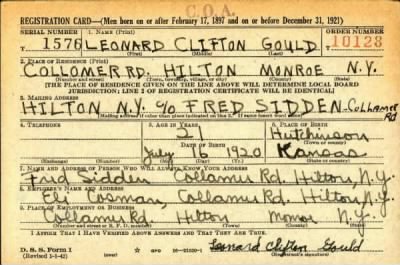 C.O.A.
REGISTRATION CARD—(Men born on or after February 17, 1897 and on or before December 31, 1921)
SERIAL NUMBER 1. NAME (Print) ORDER NUMBER
T 1576 LEONARD CLIFTON GOULD 10123
2. PLACE OF RESIDENCE (Print)
COLLOMER RD. HILTON MONROE N.Y.
(Town, township, village, or city) (County) (State)
[THE PLACE OF RESIDENCE GIVEN ON THE LINE ABOVE WILL DETERMINE LOCAL BOARD
JURISDICTION; LINE 2 OF REGISTRATION CERTIFICATE WILL BE IDENTICAL]
3. MAILING ADDRESS
HILTON N.Y. % FRED SIDDEN-Collamer Rd
(Mailing address if other than place indicated on line 2. If same insert word same)
4. TELEPHONE 5. AGE IN YEARS 6. PLACE OF BIRTH
21 Hutchinson
DATE OF BIRTH (Town or county)
July 16 1920 Kansas
(Exchange) (Number) (Mo.) (Day) (Yr.) (State or country)
7. NAME AND ADDRESS OF PERSON WHO WILL ALWAYS KNOW YOUR ADDRESS
Fred Sidden Collamer Rd. Hilton, N.Y.
8. EMPLOYER'S NAME AND ADDRESS
Eli Cosman, Collamer Rd. Hilton, N.Y.
9. PLACE OF EMPLOYMENT OR BUSINESS
Collamer Rd. Hilton Monroe N.Y.
(Number and street or R. F. D. number) (Town) (County) (State)
I AFFIRM THAT I HAVE VERIFIED ABOVE ANSWERS AND THAT THEY ARE TRUE.
D. S. S. Form 1 GPO 16—21630-1 Leonard Clifton Gould
(Revised 1-1-42) (Registrant's signature)